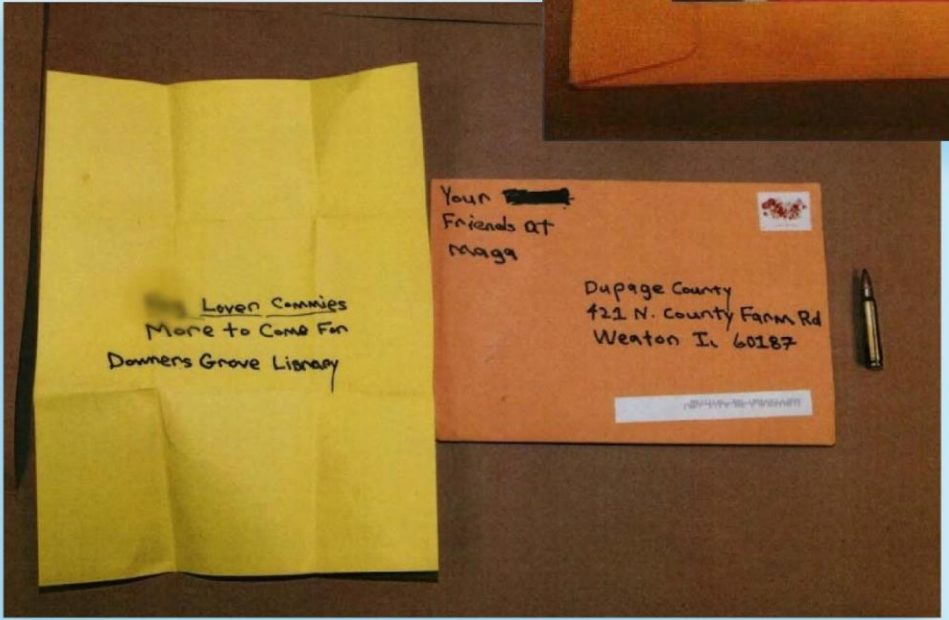 Lover Commies
More to Come For
Downers Grove Library
Your
Friends at
Maga
Dupage County
421 N. County Farm Rd
Weaton IL 60187